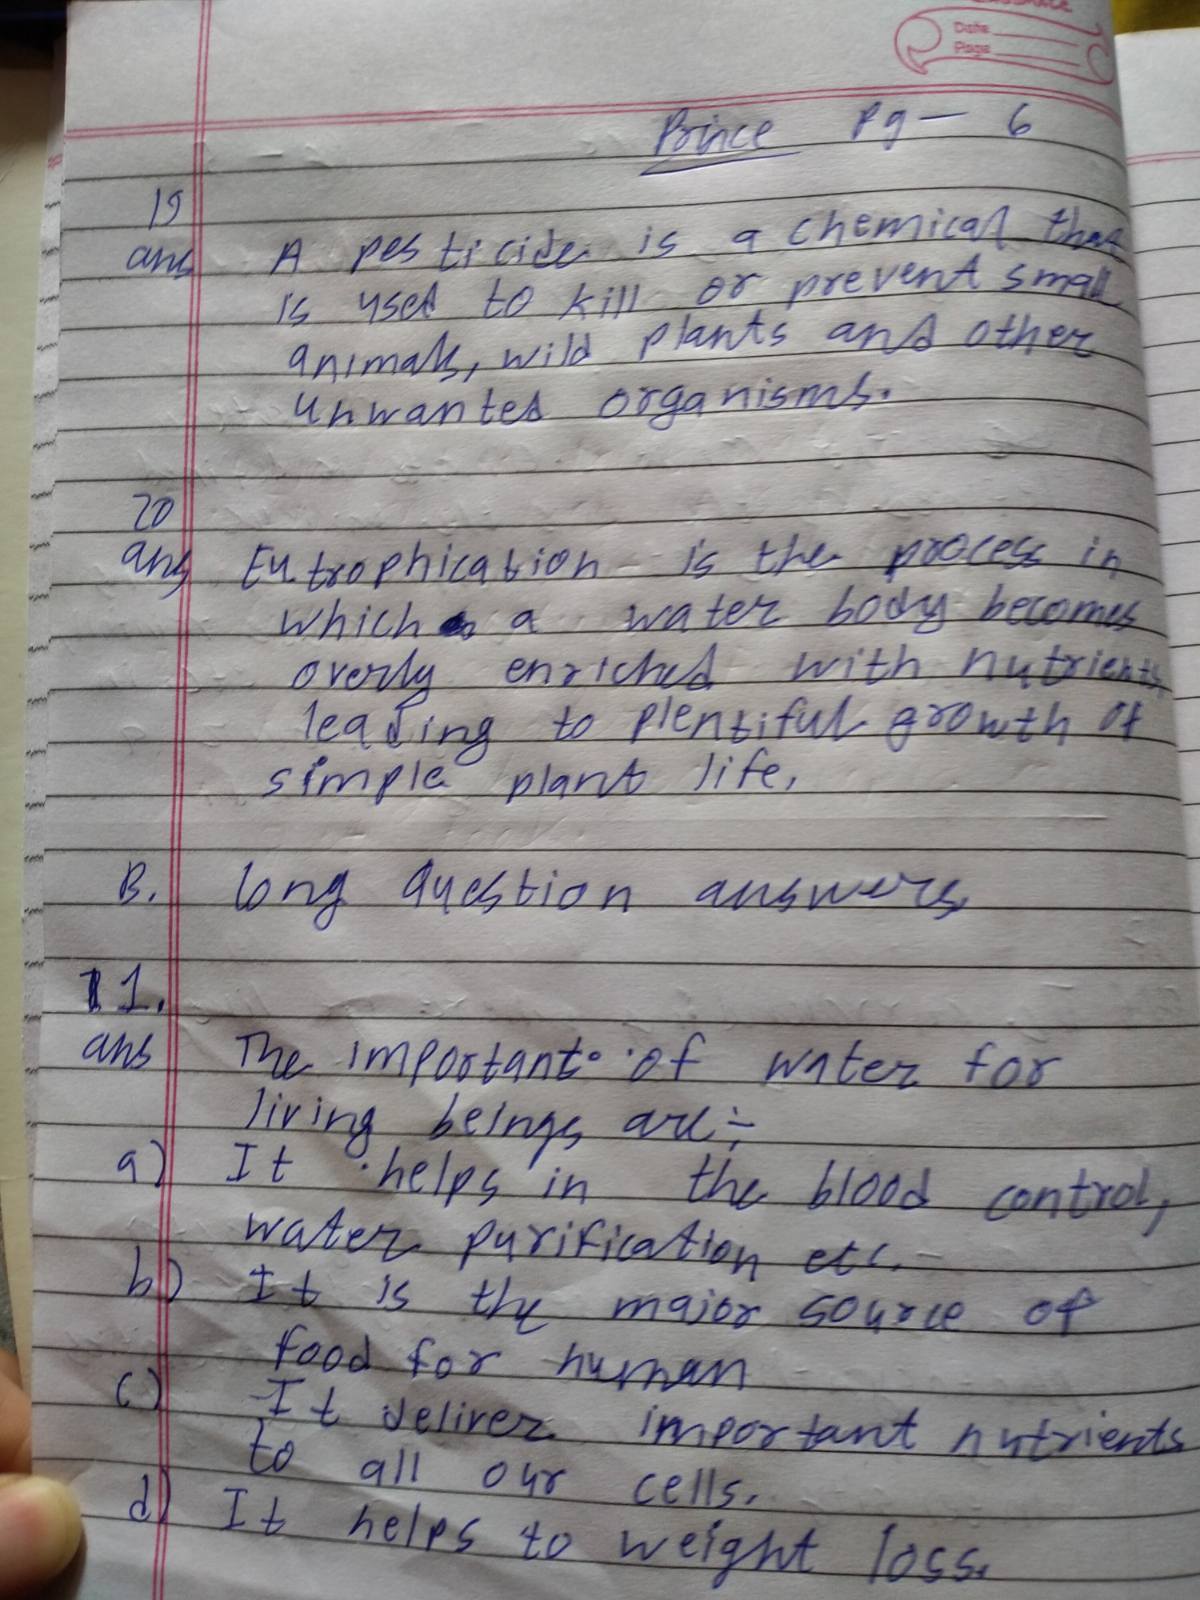 Date
Page
Prince Pg - 6
19
ans A pesticide is a chemical that
is used to kill or prevent small
animals, wild plants and other
unwanted organisms.
20
ans Eutrophication - is the process in
which a water body becomes
overly enriched with nutrients,
leading to plentiful growth of
simple plant life.
B. Long Question answers
1.
ans The important of water for
living beings are :-
a) It helps in the blood control,
water purification etc.
b) It is the major source of
food for human
c) It deliver important nutrients
to all our cells.
d) It helps to weight loss.